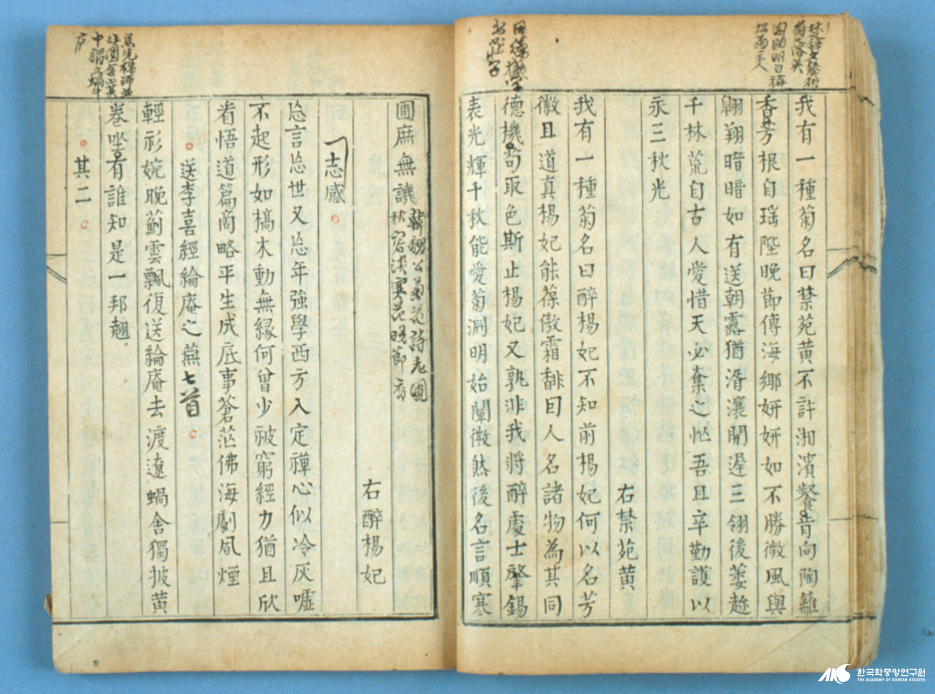 我有一種菊名曰禁苑黃不許湘濱餐昔向陶籬
香芳根自瑤陛晚節傳海鄉姸姸如不勝微風與
翺翔暗暗如有送朝露猶湑瀼開遲三翎後萎趂
千林荒自古人愛惜天必奪之忙吾且卒勤護以
永三秋光
右禁苑黃
我有一種菊名曰醉楊妃不知前楊妃何以名芳
徽且道真楊妃能葆傲霜馡曰人名諸物為其同
德機苟取色斯止楊妃又孰非我將醉處士肇錫
表光輝千秋能愛菊淵明始闡微然後名言順寒
圃庶無譏 韓魏公菊花詩老圃秋容淡寒花晚節香
右醉楊妃
志感
忘言忘世又忘年強學西方入定禪心似冷灰噓
不起形如槁木動無緣何曾少被窮經力猶且欣
看悟道篇商略平生成底事蒼茫佛海劇風煙
送李喜經綸庵之燕七首
輕衫婉晚薊雲飄復送綸庵去渡遼蝸舍獨披黃
卷坐有誰知是一邦翹
其二
한국학중앙연구원
THE ACADEMY OF KOREAN STUDIES